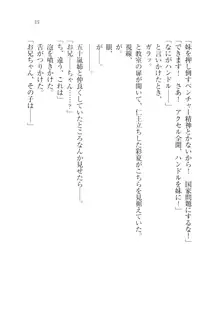 55
「妹を押し倒すベンチャー精神とかないから！　国家問題にするな！」
「できます！　さあ！　アクセル全開、ハンドルを妹に！」
「なにがハンドル――」
と言いかけたとき、
ガラッ。
と教室の扉が開く音。
視線。
仁王立ちした彩夏がこちらを見据えていた。
五十嵐姉と仲良くしていたところなんか見せたら――
「お兄――ちゃん……？」
「ち、違う、これは」
泡を噴きかけた。
「お兄ちゃん、その子は――」
舌がつりかけた。